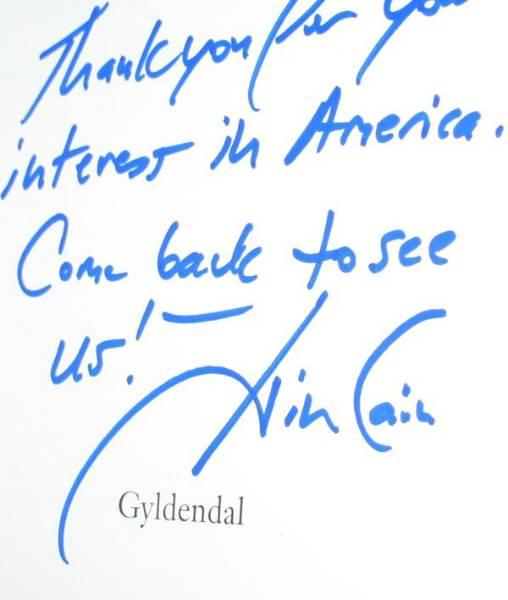 Thank you for you
interest in America.
Come back to see
us! —
Jim Cain
Gyldendal